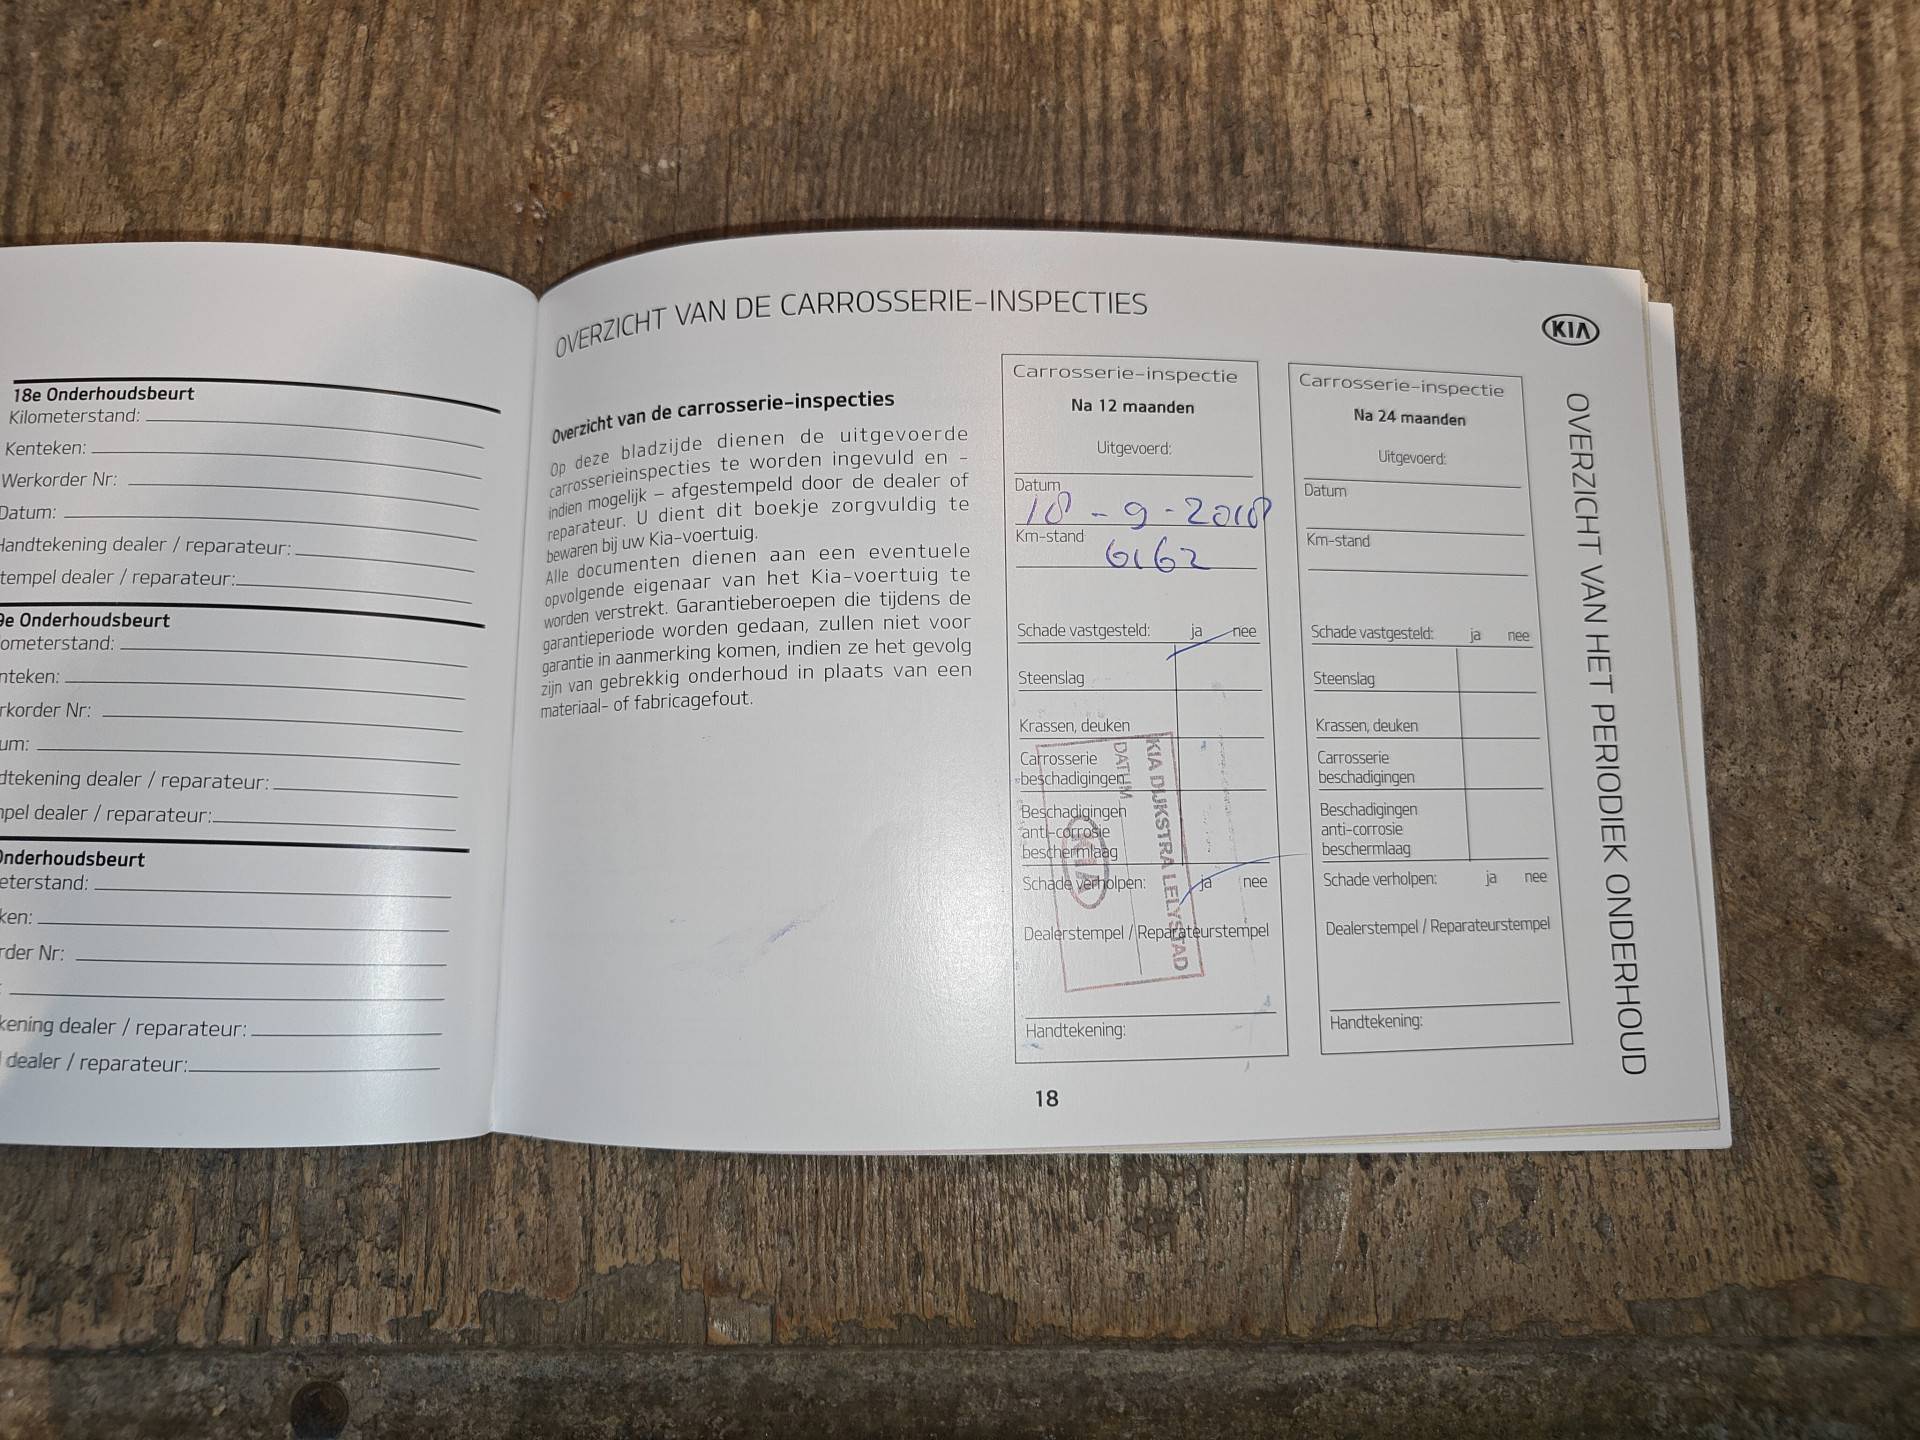 18e Onderhoudsbeurt
Kilometerstand:
Kenteken:
Werkorder Nr:
Datum:
Handtekening dealer / reparateur:
tempel dealer / reparateur:
9e Onderhoudsbeurt
ometerstand:
nteken:
rkorder Nr:
um:
dtekening dealer / reparateur:
mpel dealer / reparateur:
Onderhoudsbeurt
eterstand:
ken:
rder Nr:
:
kening dealer / reparateur:
dealer / reparateur:
OVERZICHT VAN DE CARROSSERIE-INSPECTIES
Overzicht van de carrosserie-inspecties
Op deze bladzijde dienen de uitgevoerde
carrosserieinspecties te worden ingevuld en -
indien mogelijk - afgestempeld door de dealer of
reparateur. U dient dit boekje zorgvuldig te
bewaren bij uw Kia-voertuig.
Alle documenten dienen aan een eventuele
opvolgende eigenaar van het Kia-voertuig te
worden verstrekt. Garantieberoepen die tijdens de
garantieperiode worden gedaan, zullen niet voor
garantie in aanmerking komen, indien ze het gevolg
zijn van gebrekkig onderhoud in plaats van een
materiaal- of fabricagefout.
Carrosserie-inspectie
Na 12 maanden
Uitgevoerd:
Datum
18 - 9 - 2018
Km-stand
6162
Schade vastgesteld: ja nee
Steenslag
Krassen, deuken
Carrosserie
beschadigingen
Beschadigingen
anti-corrosie
beschermlaag
Schade verholpen: ja nee
Dealerstempel / Reparateurstempel
Handtekening:
KIA DIJKSTRA LELYSTAD
DATUM
KIA
Carrosserie-inspectie
Na 24 maanden
Uitgevoerd:
Datum
Km-stand
Schade vastgesteld: ja nee
Steenslag
Krassen, deuken
Carrosserie
beschadigingen
Beschadigingen
anti-corrosie
beschermlaag
Schade verholpen: ja nee
Dealerstempel / Reparateurstempel
Handtekening:
KIA
OVERZICHT VAN HET PERIODIEK ONDERHOUD
18